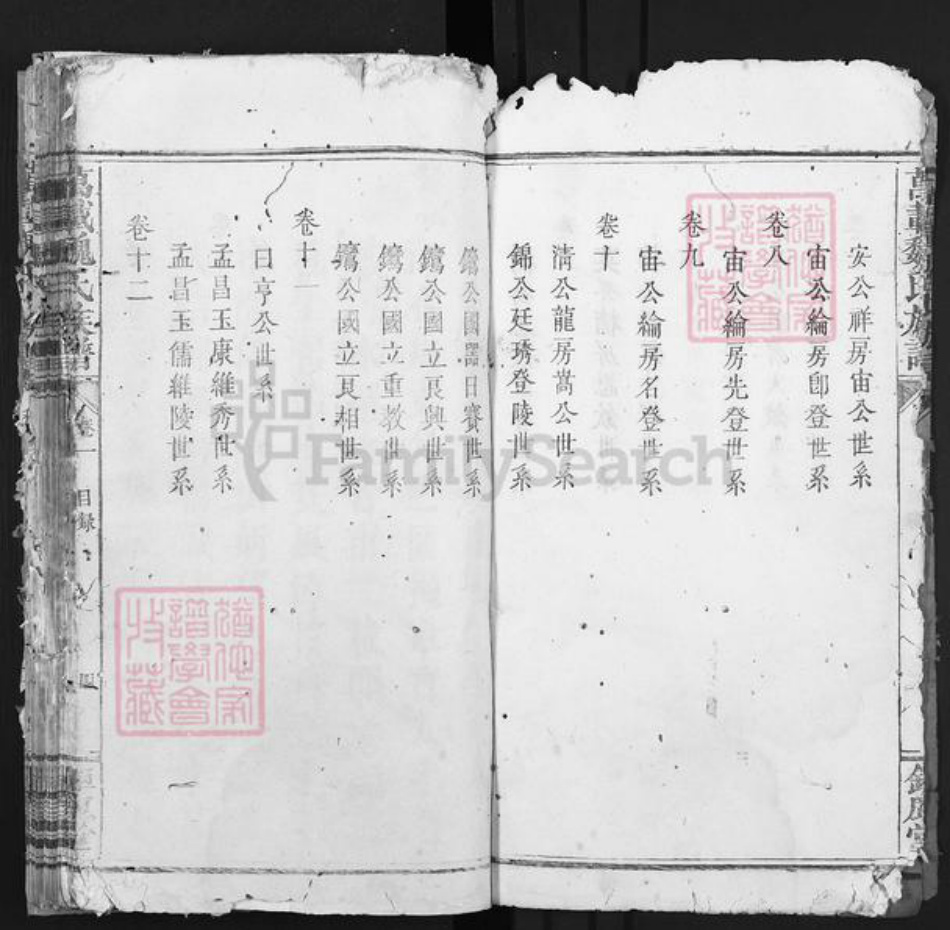 萬載魏氏族譜
安公祥房宙公世系
宙公綸房卽登世系
卷八
宙公綸房先登世系
卷九
宙公綸房名登世系
卷十
清公龍房嵩公世系
錦公廷琇登陵世系
公國日賽世系
公國立良興世系
公國立重教世系
公國立良相世系
卷十一
曰亨公世系
孟昌玉康維秀世系
孟昌玉儒維陵世系
卷十二
萬載魏氏族譜
卷一
目錄
四
譜學會
收藏
FamilySearch